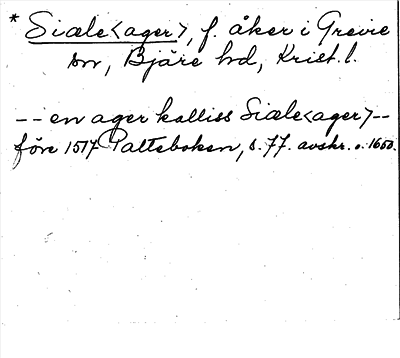 * Siæle<ager>, f. åker i Grevie
sn, Bjäre hd, Krist. l.
-- en ager kalliss Siæle<ager> --
före 1517 Palteboken, s. 77. avskr. o. 1600.